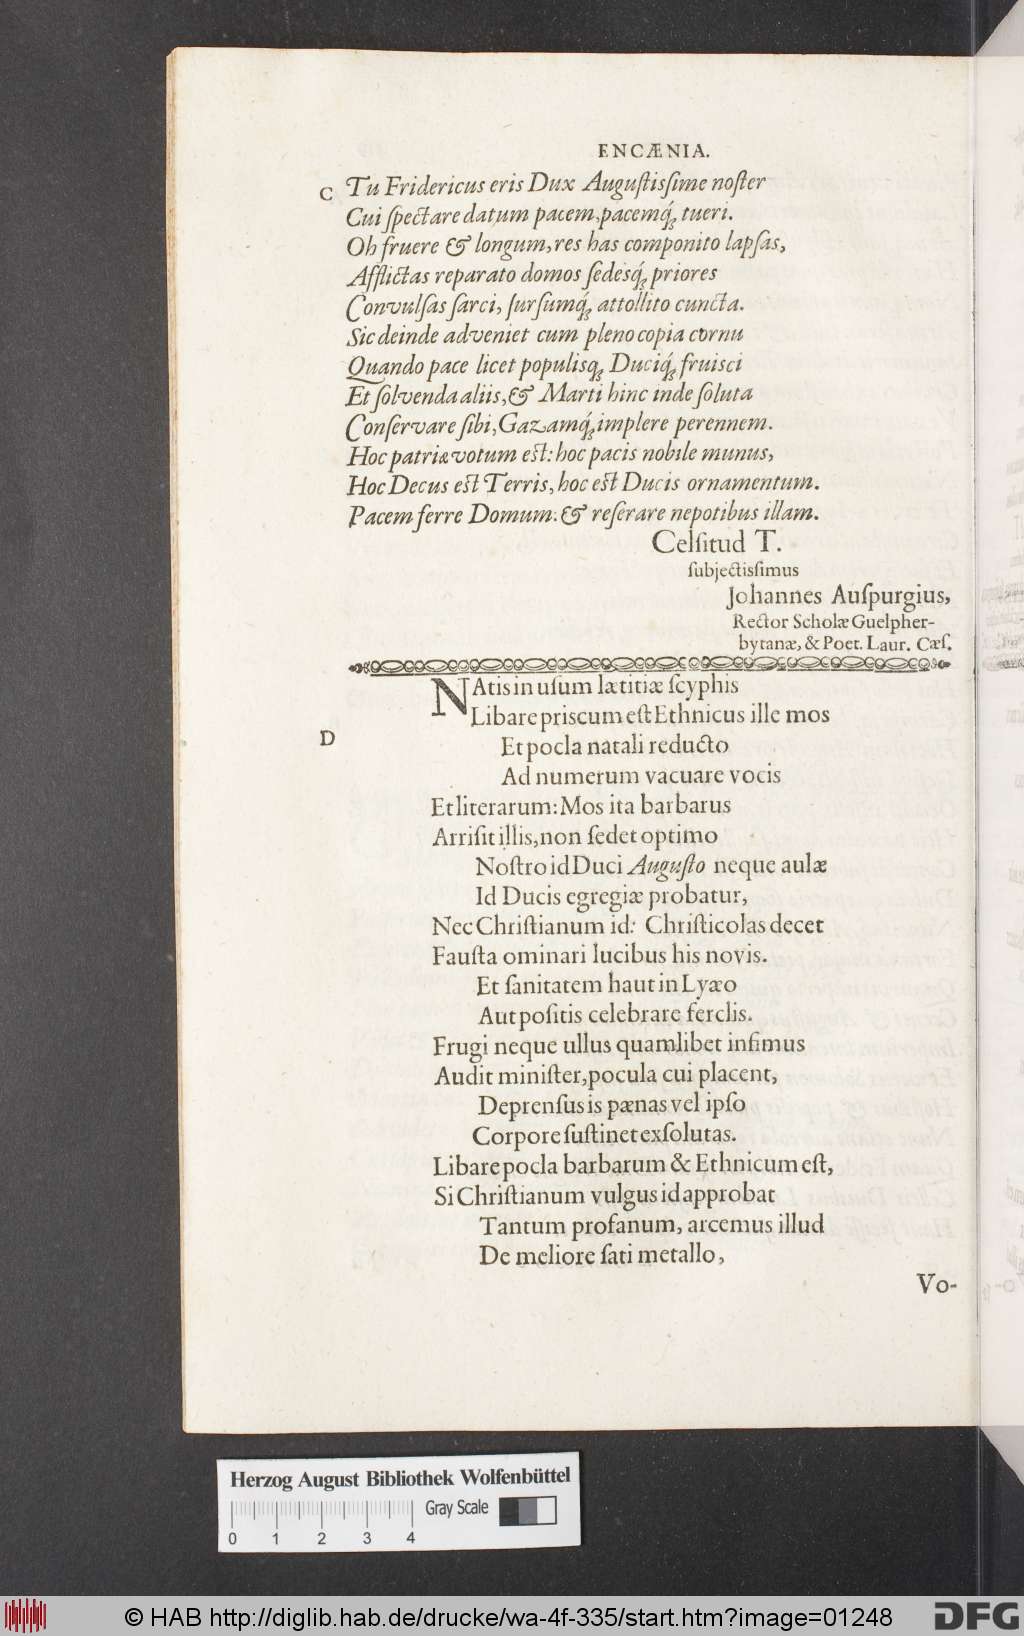 ENCÆNIA.
C Tu Fridericus eris Dux Auguſtisſime noſter
Cui ſpectare datum pacem, pacemq́; tueri.
Oh fruere & longum, res has componito lapſas,
Afflictas reparato domos ſedesq́; priores
Convulſas ſarci, ſurſumq́; attollito cuncta.
Sic deinde adveniet cum pleno copia cornu
Quando pace licet populisq; Duciq́; fruisci
Et ſolvenda aliis, & Marti hinc inde ſoluta
Conſervare ſibi, Gazamq́; implere perennem.
Hoc patriæ votum eſt: hoc pacis nobile munus,
Hoc Decus eſt Terris, hoc eſt Ducis ornamentum.
Pacem ferre Domum: & reſerare nepotibus illam.
Celſitud T.
ſubjectisſimus
Johannes Auſpurgius,
Rector Scholæ Guelpher-
bytanæ, & Poet. Laur. Cæſ.
NAtis in uſum lætitiæ ſcyphis
Libare priscum eſt Ethnicus ille mos
D
Et pocla natali reducto
Ad numerum vacuare vocis
Et literarum: Mos ita barbarus
Arriſit illis, non ſedet optimo
Noſtro id Duci Auguſto neque aulæ
Id Ducis egregiæ probatur,
Nec Chriſtianum id: Chriſticolas decet
Fauſta ominari lucibus his novis.
Et ſanitatem haut in Lyæo
Aut poſitis celebrare ferclis.
Frugi neque ullus quamlibet infimus
Audit miniſter, pocula cui placent,
Deprenſus is pænas vel ipſo
Corpore ſuſtinet exſolutas.
Libare pocla barbarum & Ethnicum eſt,
Si Chriſtianum vulgus id approbat
Tantum profanum, arcemus illud
De meliore ſati metallo,
Vo-
Herzog August Bibliothek Wolfenbüttel
Gray Scale
0 1 2 3 4
© HAB http://diglib.hab.de/drucke/wa-4f-335/start.htm?image=01248
DFG